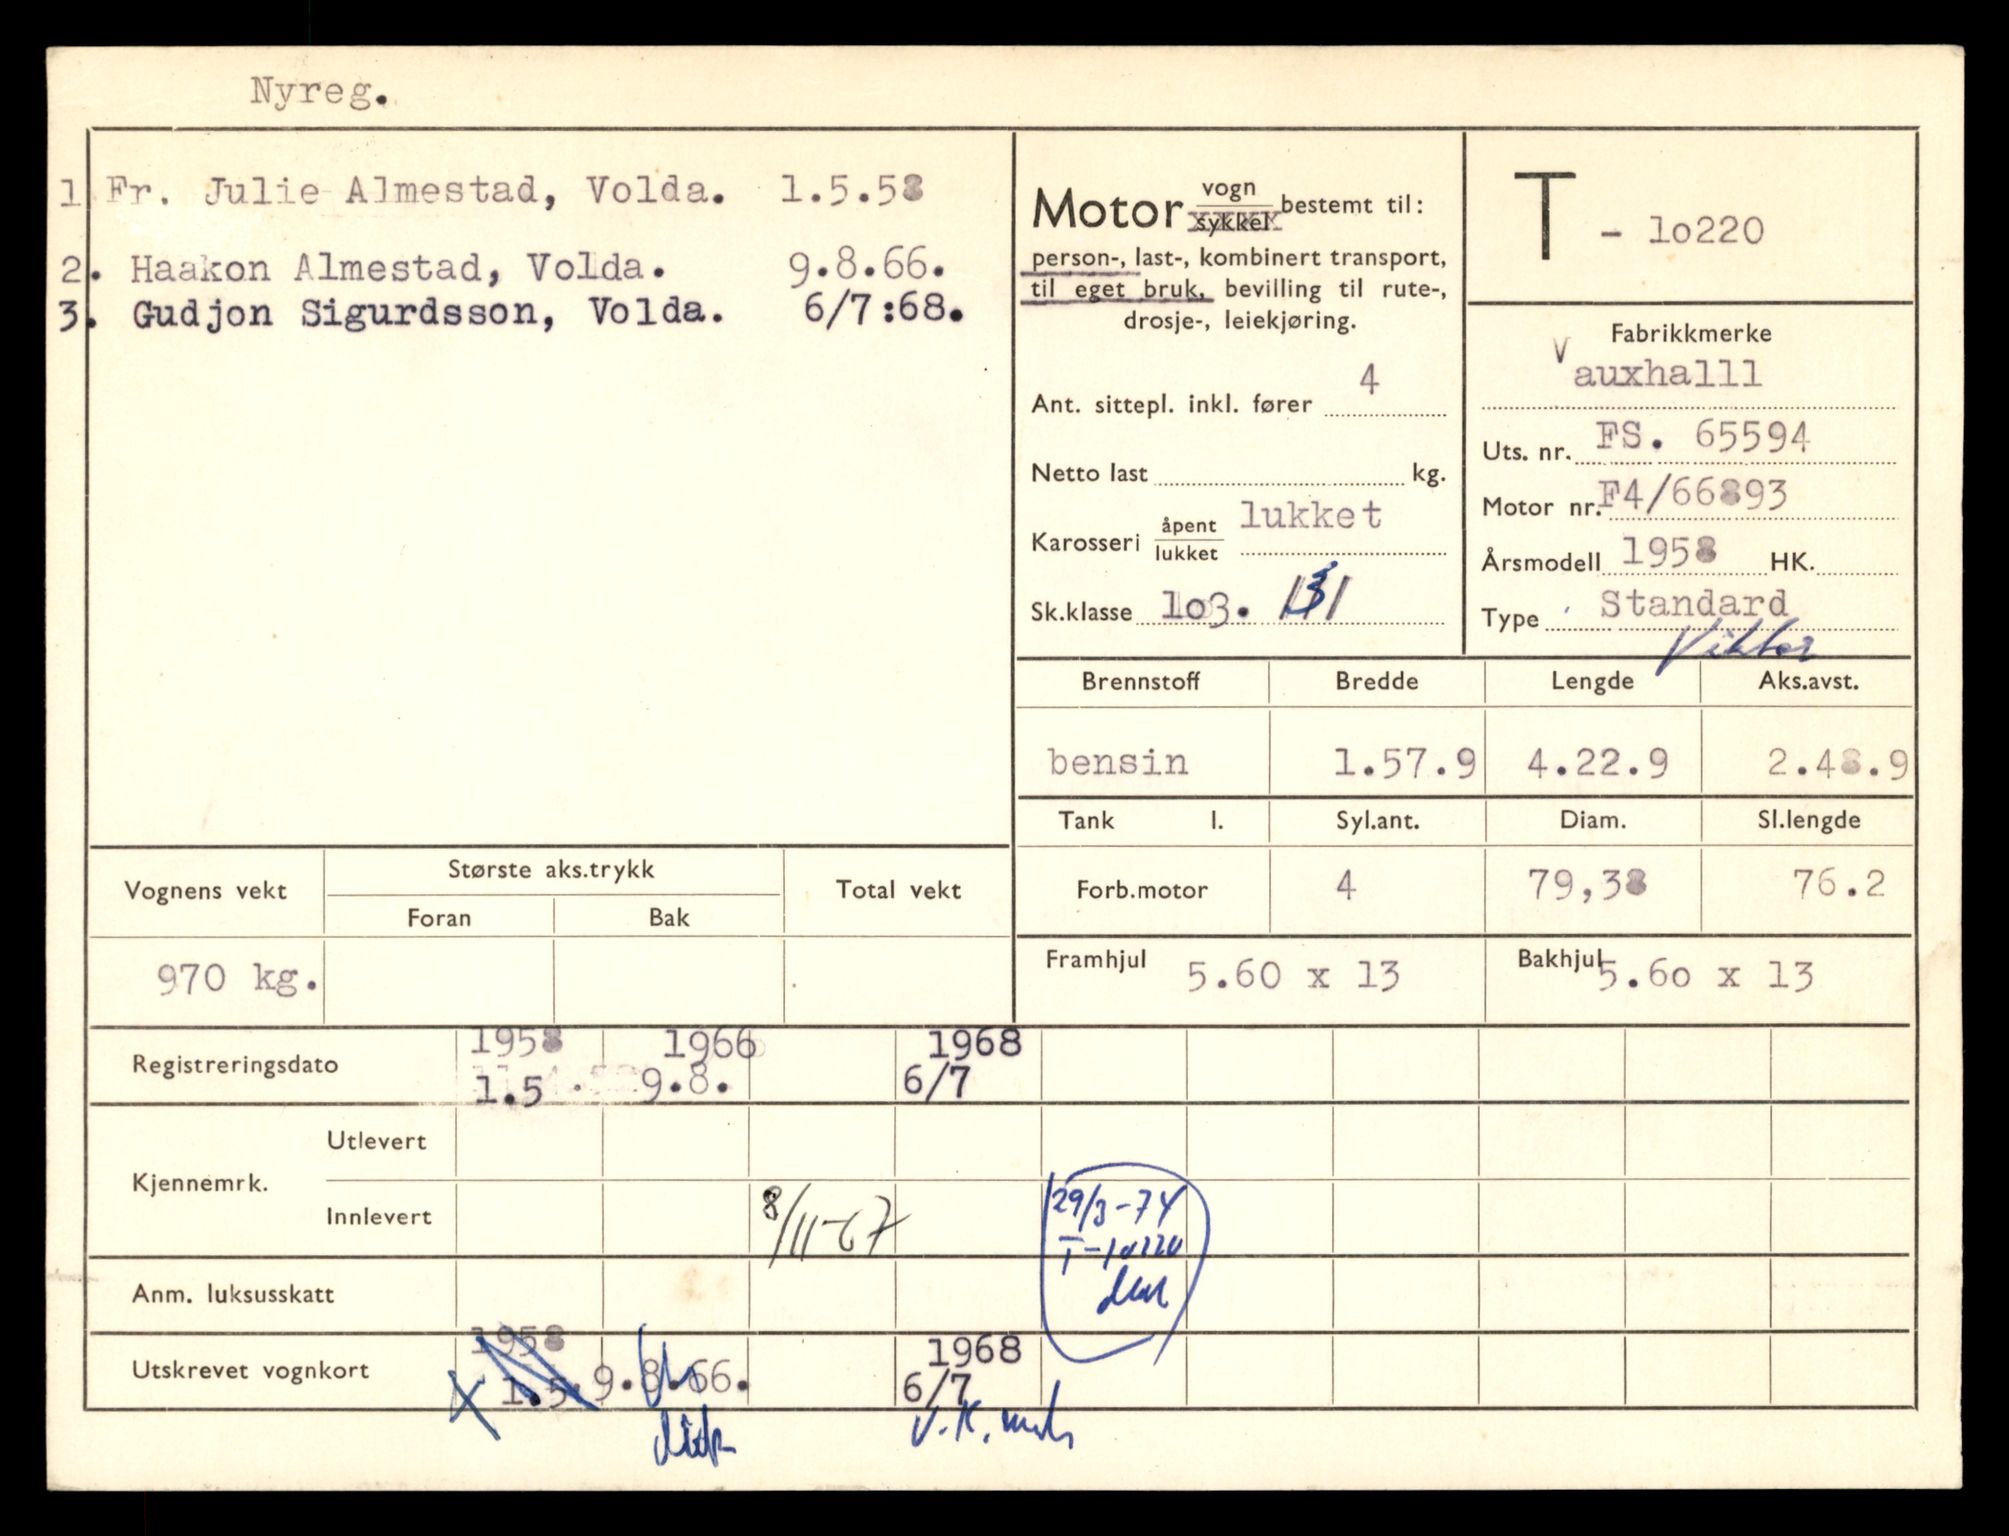 Nyreg.
1 Fr. Julie Almestad, Volda. 1.5.58
2. Haakon Almestad, Volda. 9.8.66.
3. Gudjon Sigurdsson, Volda. 6/7:68.
Motor vogn/sykkel bestemt til:
person-, last-, kombinert transport,
til eget bruk, bevilling til rute-,
drosje-, leiekjøring.
Ant. sittepl. inkl. fører 4
Netto last kg.
Karosseri åpent/lukket lukket
Sk.klasse lo3. 131
T - lo220
Fabrikkmerke
Vauxhalll
Uts. nr. FS. 65594
Motor nr. F4/66893
Årsmodell 1958 HK.
Type Standard
Viktor
Brennstoff Bredde Lengde Aks.avst.
bensin 1.57.9 4.22.9 2.48.9
Tank l. Syl.ant. Diam. Sl.lengde
Forb.motor 4 79,38 76.2
Framhjul 5.60 x 13 Bakhjul 5.6o x 13
Vognens vekt Største aks.trykk Total vekt
Foran Bak
970 kg.
Registreringsdato 1958 1966 1968
1.5 9.8. 6/7
Kjennemrk. Utlevert
Innlevert 8/11-67 29/3-74
T-10220
Anm. luksusskatt
Utskrevet vognkort 1958 9.8.66. 1968
X 1.5. 6/7
V.K.